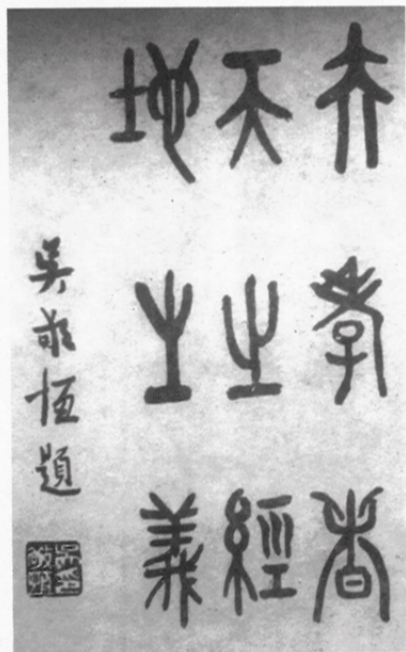 夫孝者
天之經
地之義
吳敬恒題